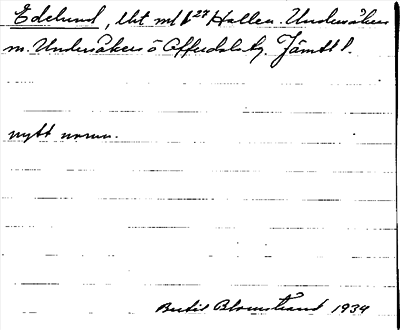 Edelund, lht ml 1/27 Hallen. Undersåkers
m. Undersåkers o Offerdals tg. Jämtl l.
nytt namn.
Bertil Blomstrand 1934